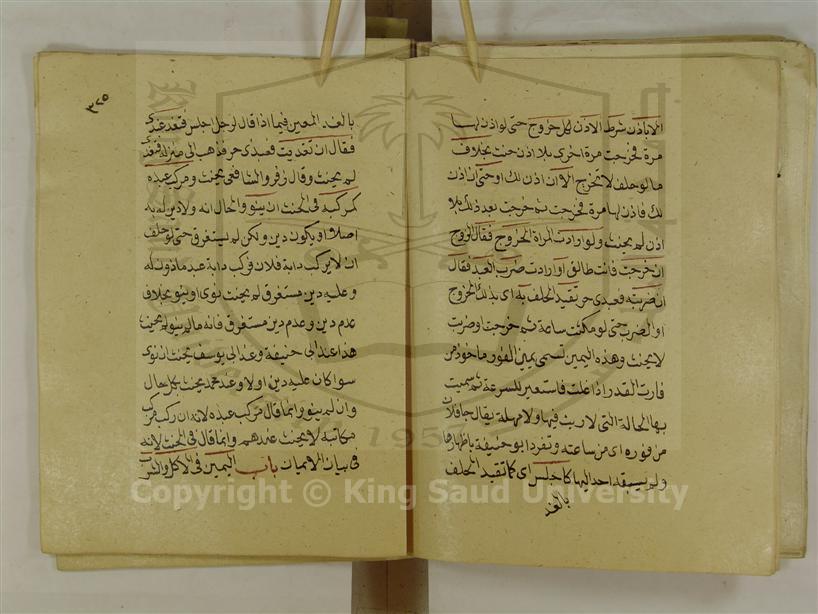 الا باذن شرط الاذن لكل خروج حتى لو اذن لها
مرة فخرجت مرة اخرى بلا اذن حنث بخلاف
ما لو حلف لا تخرج الا ان اذن لك او حتى ان اذن
لك فاذن لها مرة فخرجت ثم خرجت بعد ذلك بلا
اذن لم يحنث ولو ارادت المراة الخروج فقال الزوج
ان خرجت فانت طالق او ارادت ضرب العبد فقال
ان ضربته فعبدى حر تقيد الحلف به اى بذلك الخروج
او الضرب حتى لو مكثت ساعة ثم خرجت او ضربت
لا يحنث وهذه اليمين تسمى يمين الفور ماخوذ من
فارت القدر اذا غلت فاستعير للسرعة ثم سميت
بها الحالة التى لا ريث فيها ولا مهلة يقال جا فلان
من فوره اى من ساعته وتفرد ابو حنيفة باظهارها
ولم يسبقه احد اليها كاجلس اى كما تقيد الحلف
بالغد
٣٢٥
بالغد المعين فيما اذا قال لرجل اجلس فتغد عندى
فقال ان تغديت فعبدى حر فذهب الى منزله فتغدى
لم يحنث وقال زفر والشافعى يحنث ومركب عبده
كمركبه فى الحنث ان ينو والحال انه ولا دين له به
اصلا او يكون دين ولكن لم يستغرق حتى لو حلف
ان لا يركب دابة فلان فركب دابة عبد ماذون له
وعليه دين مستغرق لم يحنث نوى او لم ينو بخلاف
عدم دين وعدم دين مستغرق فانه مالم ينو لم يحنث
هذا عند ابى حنيفة وعند ابى يوسف يحنث ان نوى
سوا كان عليه دين او لا وعند محمد يحنث بكل حال
وان لم ينو وانما قال مركب عبده لانه ان ركب مركب
مكاتبه لا يحنث عندهم وانما قال فى الحنث لانه
فى بيان الايمان باب اليمين فى الاكل والشرب
Copyright © King Saud University
1957